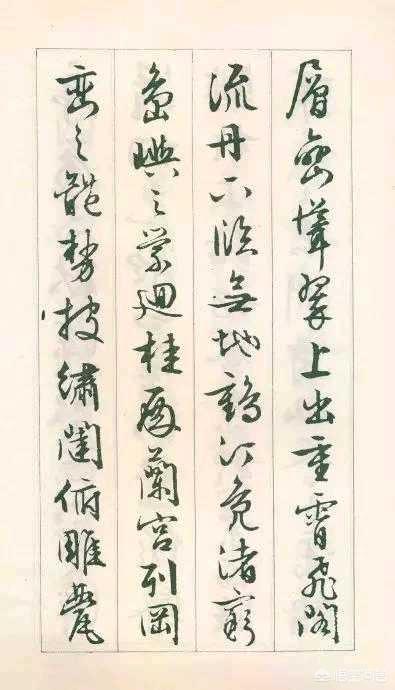 層巒聳翠上出重霄飛閣
流丹下臨無地鶴汀鳧渚窮
島嶼之縈迴桂殿蘭宮列岡
巒之體勢披繡闥俯雕甍
悟空问答